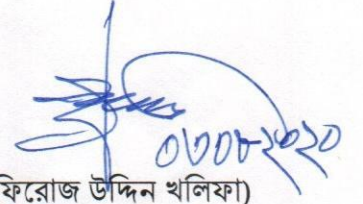 ০৩০৮২০২০
ফিরোজ উদ্দিন খলিফা)